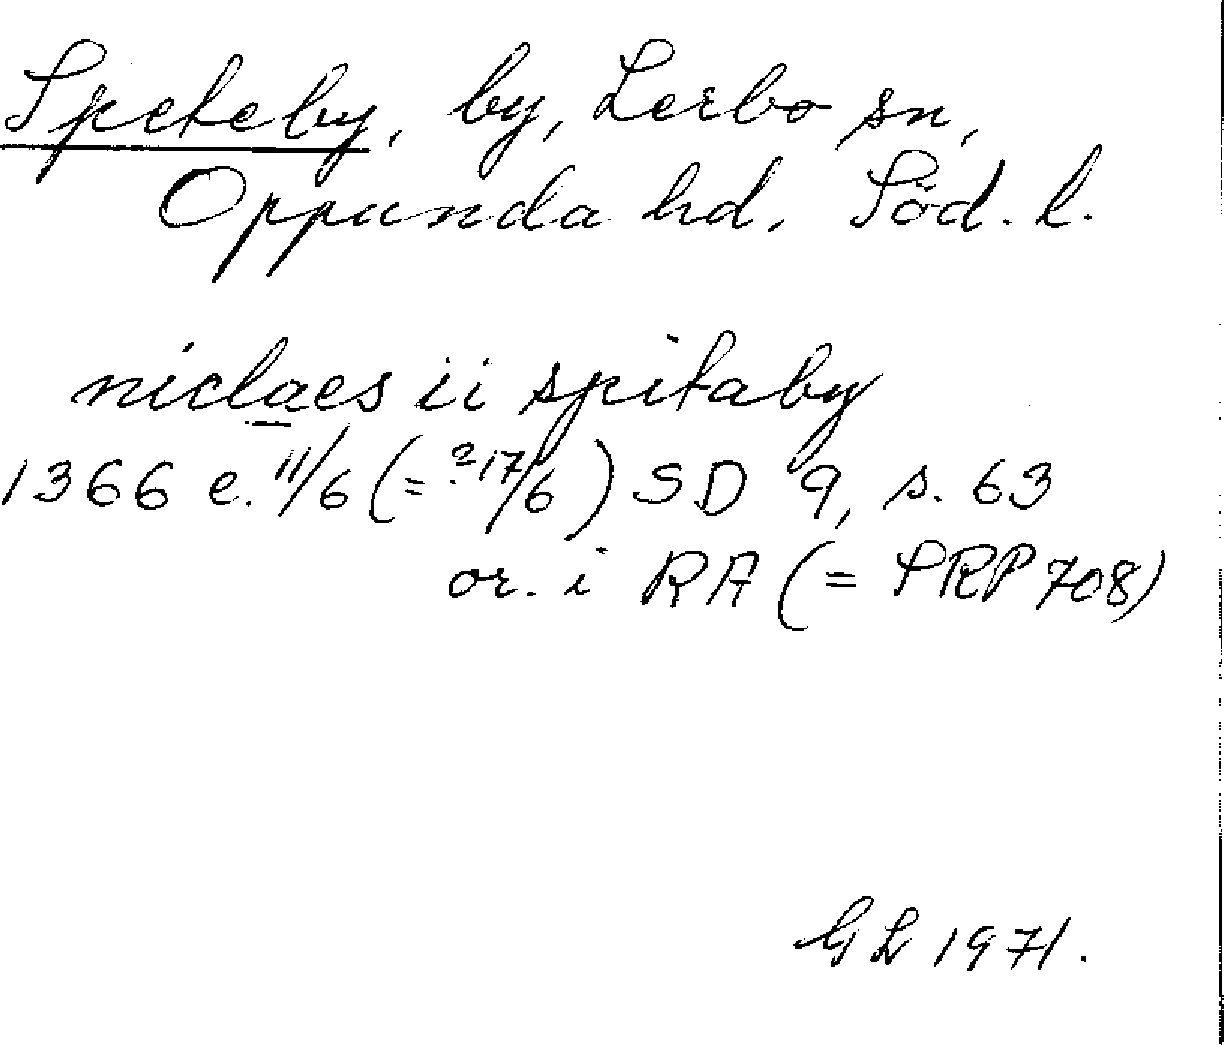 Spekeby, by, Lerbo sn,
Oppunda hd, Söd. l.
niclaes ii spikaby
1366 e. 11/6 (= ? 17/6) SD 9, s. 63
or. i RA (= SRP 708)
GL 1971.